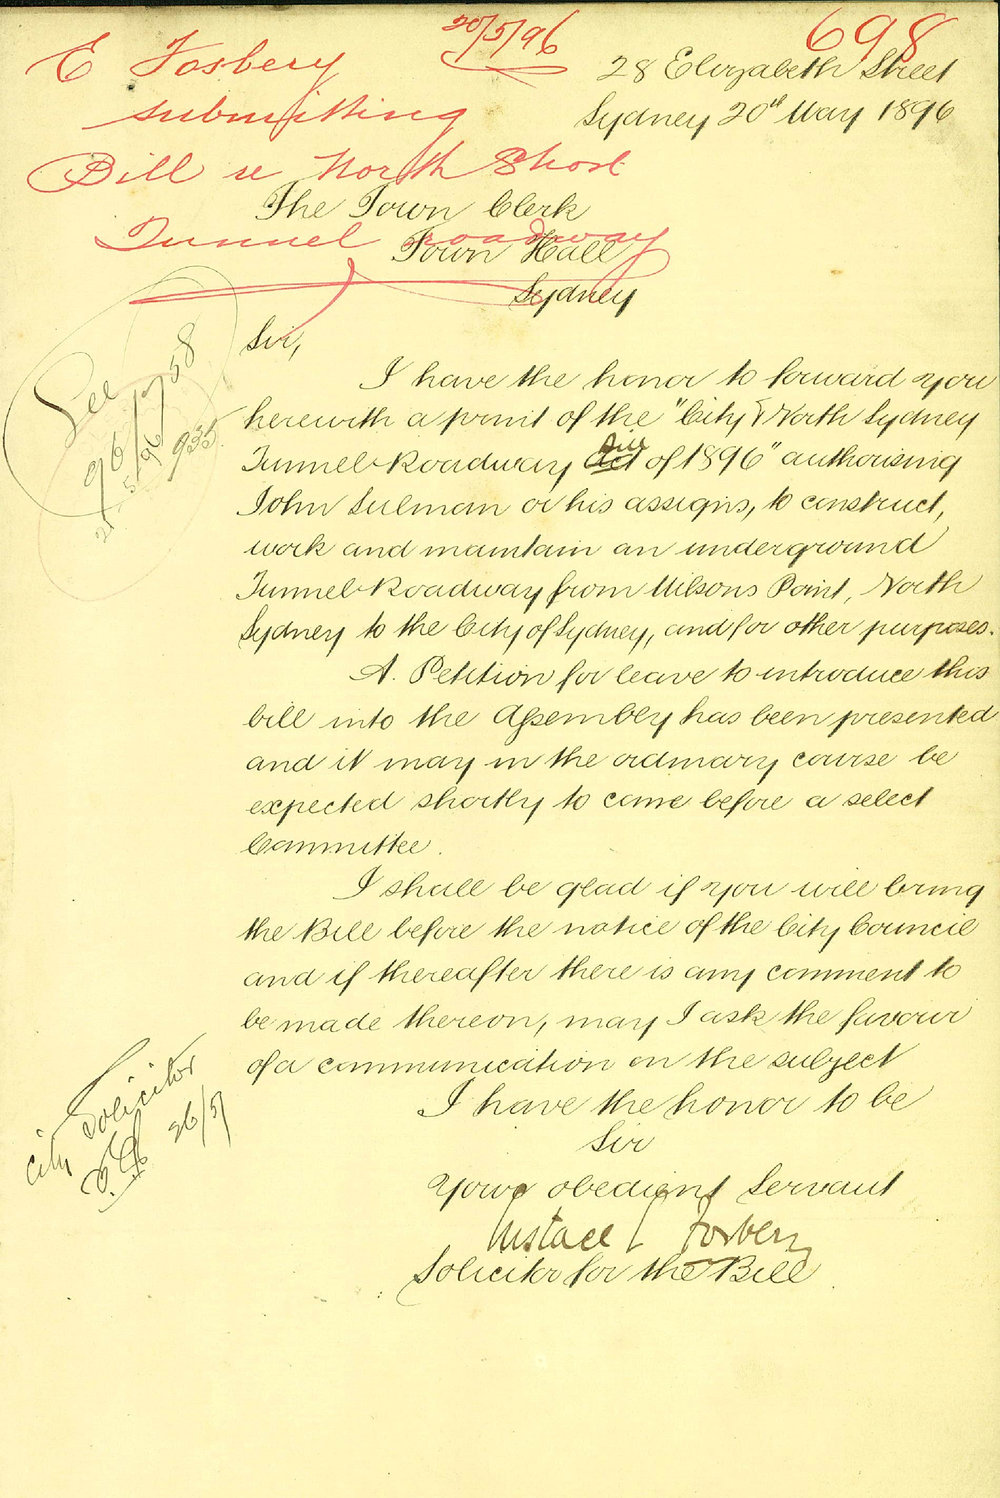 20/5/96
698
E Fosbery
submitting
Bill re North Shore
Tunnel roadway
28 Elizabeth Street
Sydney 20th May 1896
The Town Clerk
Town Hall
Sydney
Sir,
I have the honor to forward you
herewith a print of the "City & North Sydney
Tunnel-Roadway Act Bill of 1896" authorising
John Sulman or his assigns, to construct,
work and maintain an underground
Tunnel-Roadway from Milsons Point, North
Sydney to the City of Sydney, and for other purposes.
A. Petition for leave to introduce this
bill into the Assembly has been presented
and it may in the ordinary course be
expected shortly to come before a select
Committee.
I shall be glad if you will bring
the Bill before the notice of the City Council
and if thereafter there is any comment to
be made thereon, may I ask the favour
of a communication on the subject
I have the honor to be
Sir
Your obedient Servant
Eustace Fosbery
Solicitor for the Bill
See
96/1758
935
City Solicitor
26/5/